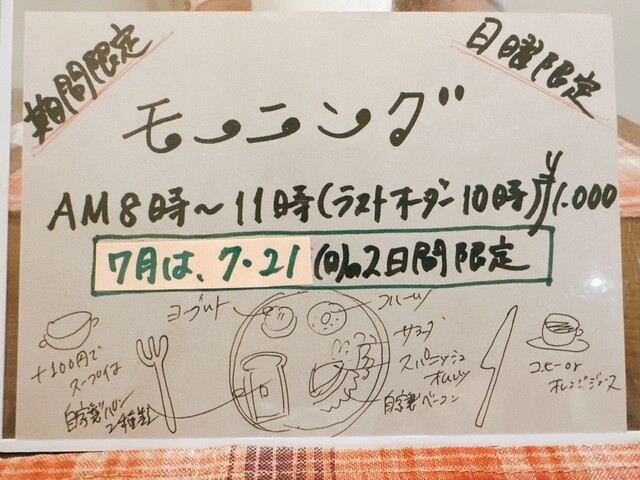 期間限定
日曜限定
モーニング
AM8時〜11時(ラストオーダー10時)¥1.000
7月は、7・21(日)の2日間限定
ヨーグルト
フルーツ
サラダ
スパニッシュ
オムレツ
自家製ベーコン
+100円で
スープイは
自家製パン
2種類
コーヒーor
オレンジジュース